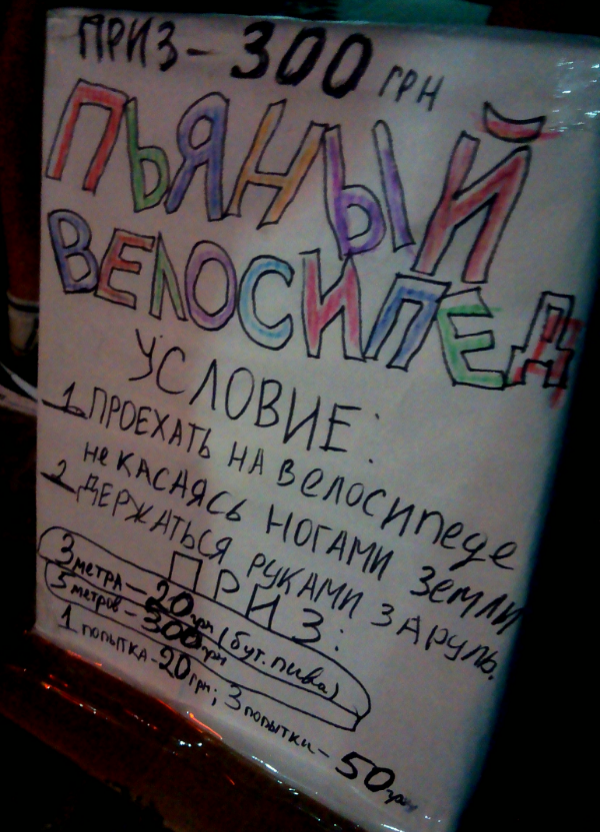 ПРИЗ - 300 ГРН
ПЬЯНЫЙ
ВЕЛОСИПЕД
УСЛОВИЕ:
1. ПРОЕХАТЬ НА ВЕЛОСИПЕДЕ
НЕ КАСАЯСЬ НОГАМИ ЗЕМЛИ
2. ДЕРЖАТЬСЯ РУКАМИ ЗА РУЛЬ.
ПРИЗ:
3 МЕТРА - 20 грн (бут. пива)
5 метров - 300 грн
1 попытка - 20 грн; 3 попытки - 50 грн